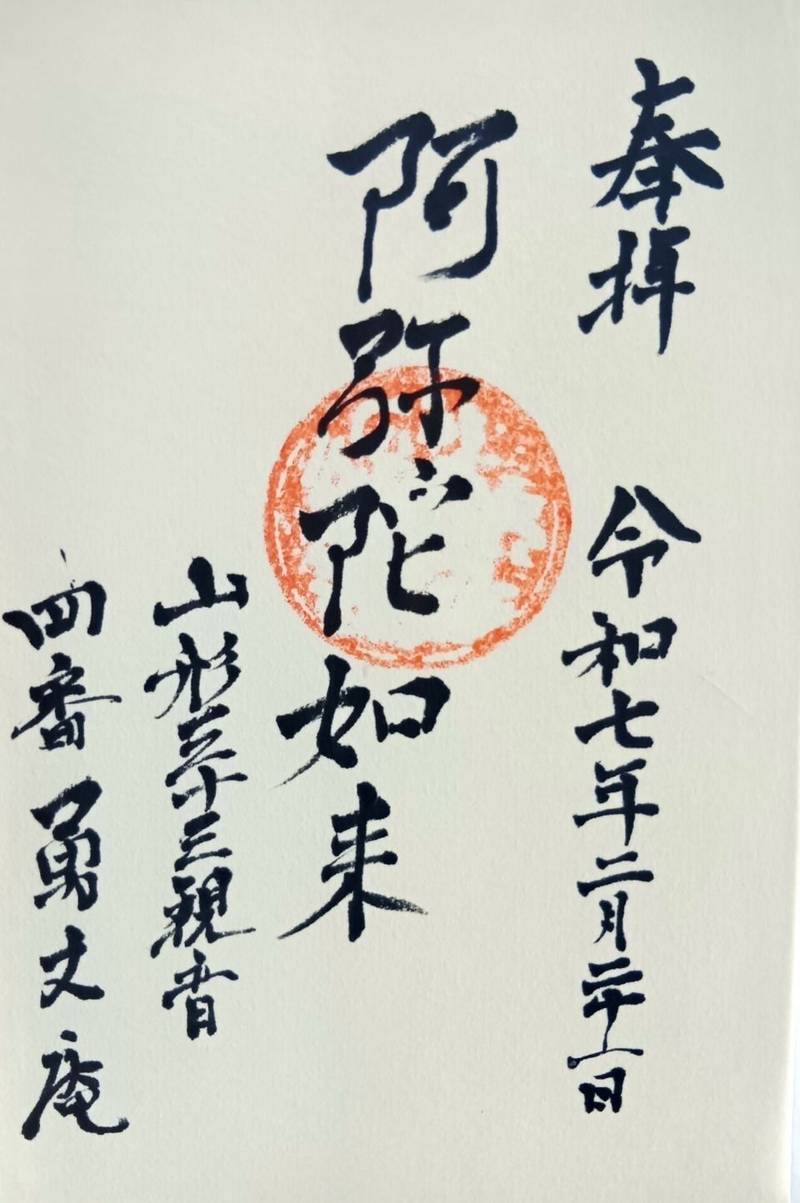 奉拝
令和七年二月二十一日
阿弥陀如来
山形三十三観音
四番 勇丈庵